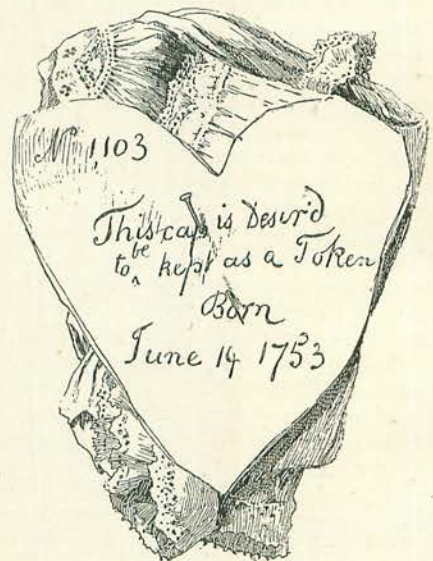 No 1103
This cap is Desir'd
to be kept as a Token
Born
June 14 1753